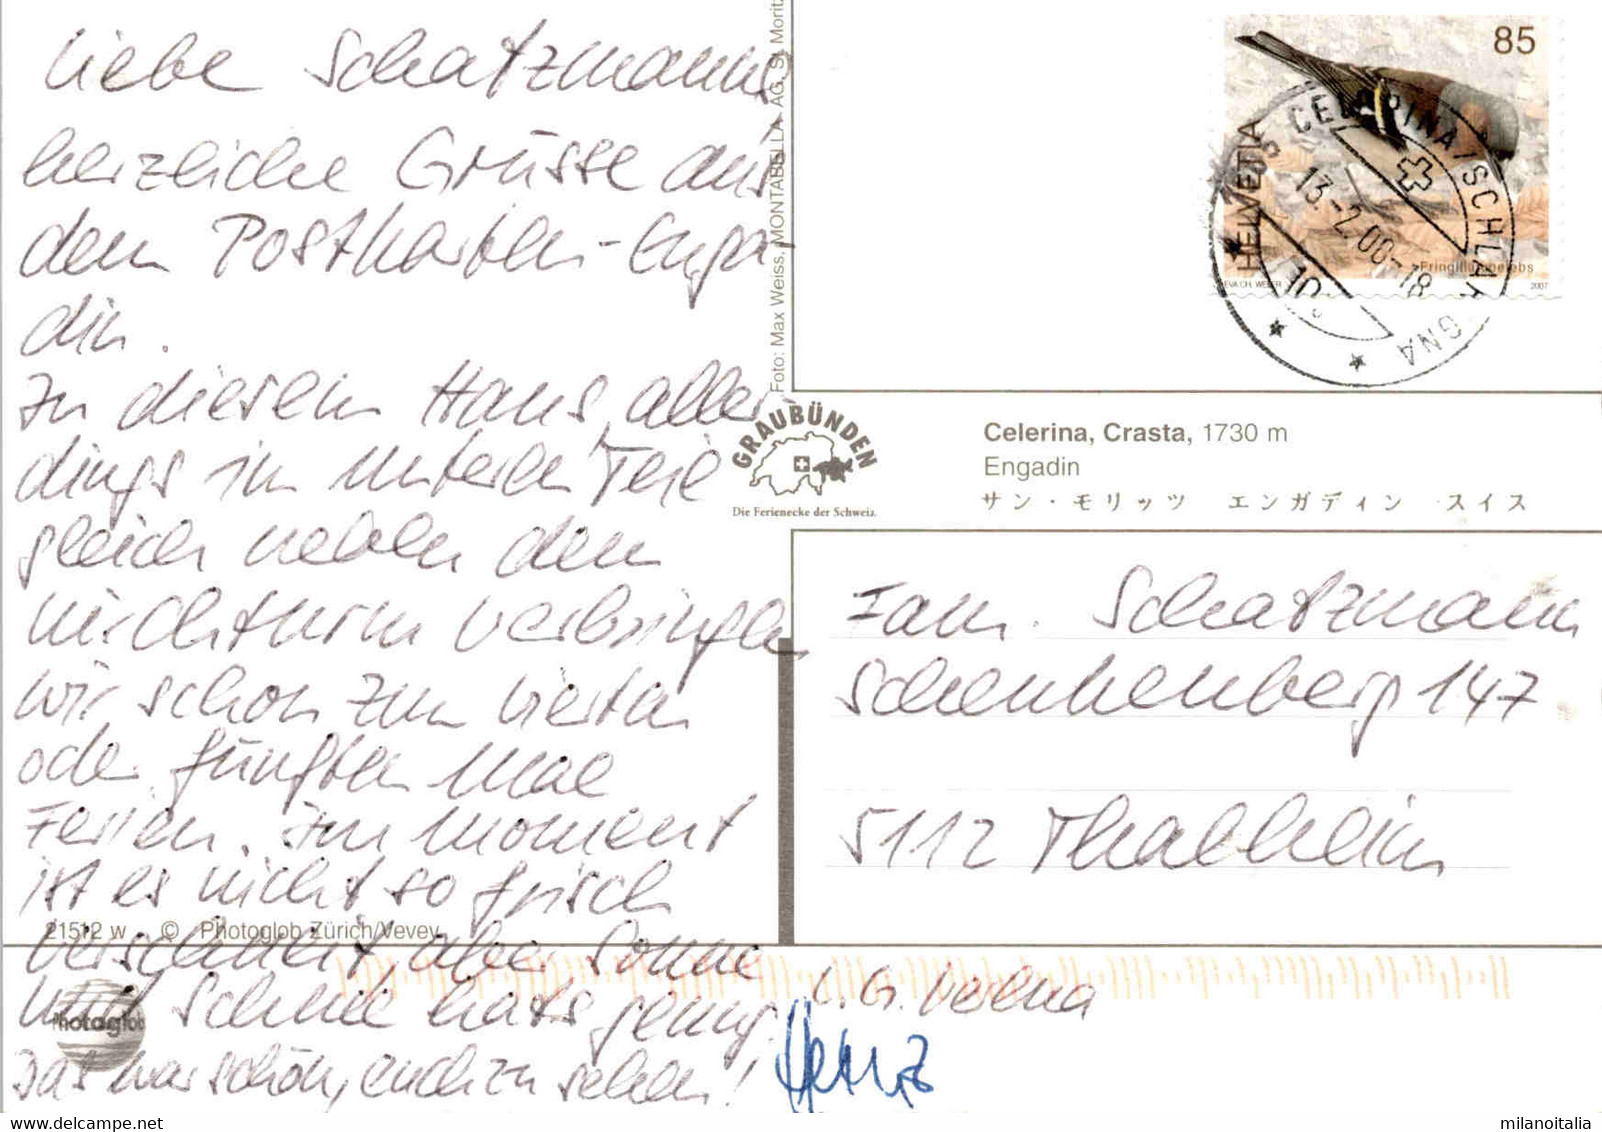 Liebe Schatzmanns
herzliche Grüsse aus
dem Postkarten-Enga-
din.
In diesem Haus, aller-
dings im unteren Teil
gleich neben dem
Kirchturm verbringen
wir schon zum vierten
oder fünften Mal
Ferien. Im Moment
ist es nicht so frisch
verschneit, aber Sonne
und Schnee hats genug.
Das war schön, euch zu sehen!
L. G. Verena
Heinz
Foto: Max Weiss, MONTABELLA AG, St. Moritz
21512 w © Photoglob Zürich/Vevey
Photoglob
85
HELVETIA
Fringilla coelebs
EVA CH. WEBER 2007
CELERINA/SCHLARIGNA
13.-2.00-18
GRAUBÜNDEN
Die Ferienecke der Schweiz.
Celerina, Crasta, 1730 m
Engadin
サン・モリッツ エンガディン スイス
Fam. Schatzmann
Schenkenberg 147
5112 Thalheim
milanoitalia